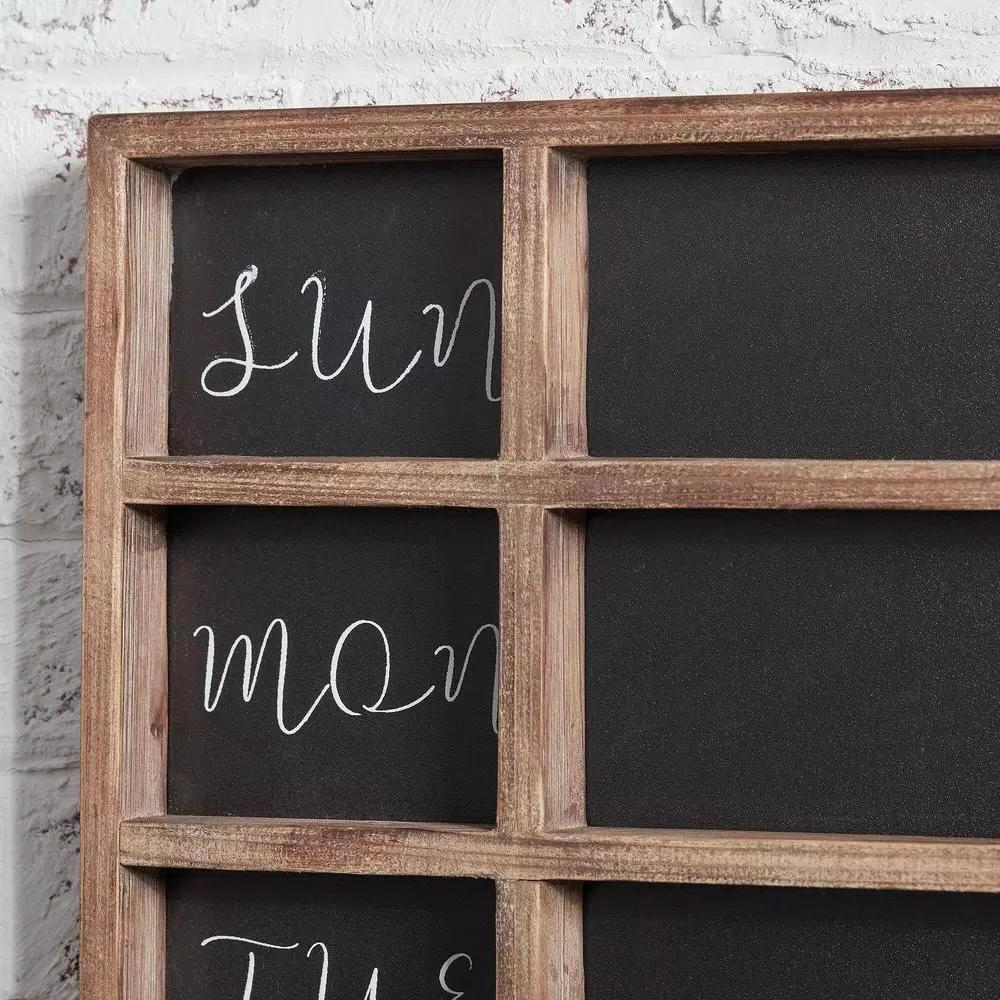 Sun
Mon
Tue